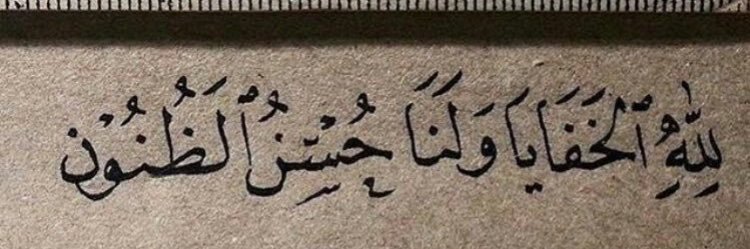 لِلّٰهِ ٱلْخَفَايَا وَلَنَا حُسْنُ ٱلظُّنُوْن